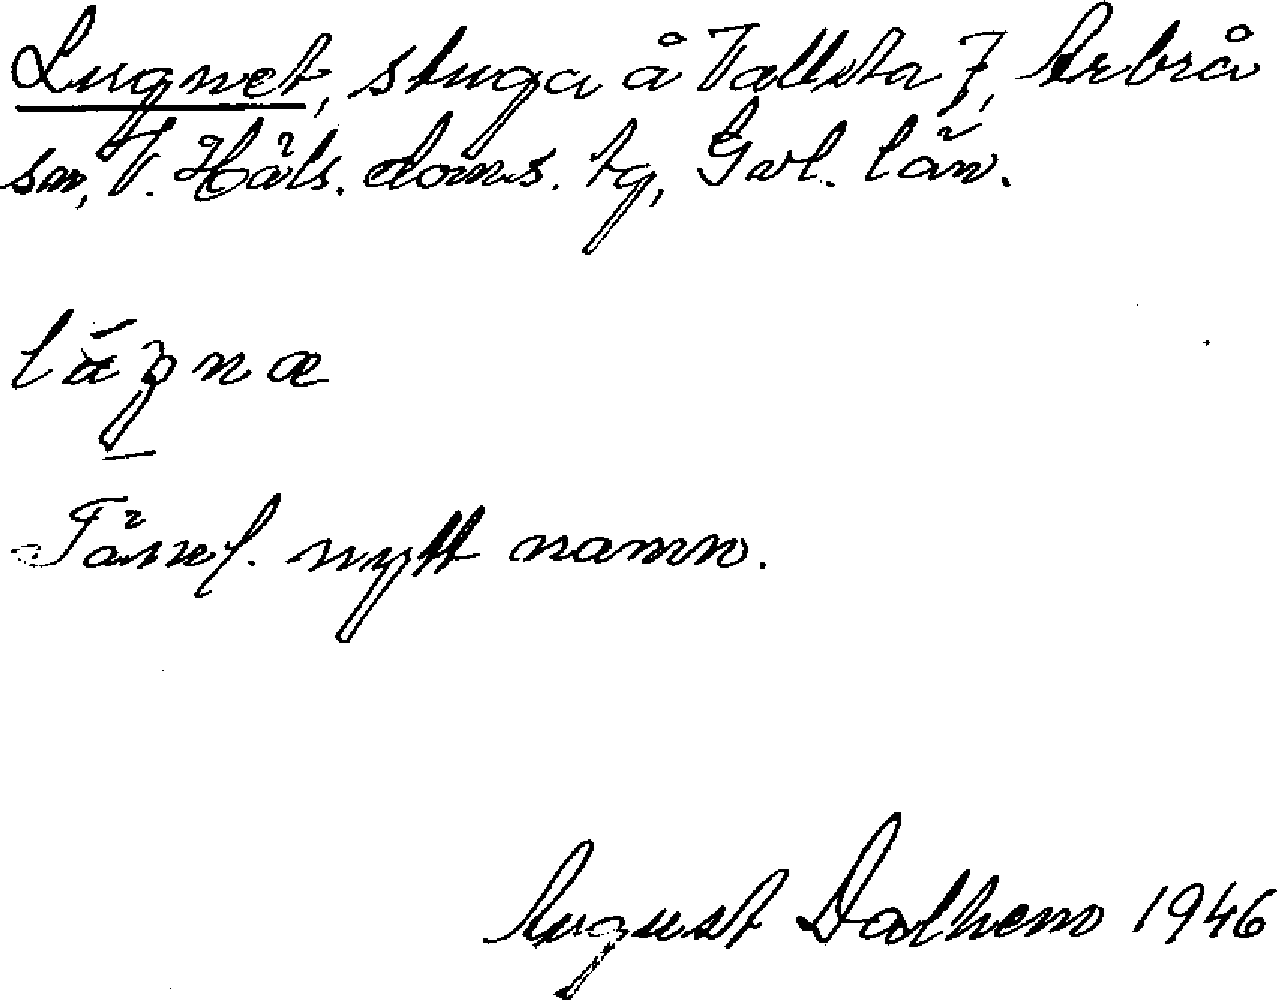 Lugnet, stuga å Vallsta 7, Arbrå
sn, V. Häls. doms. tg, Gvl. län.
Tämj. nytt namn.
August Dalhem 1946